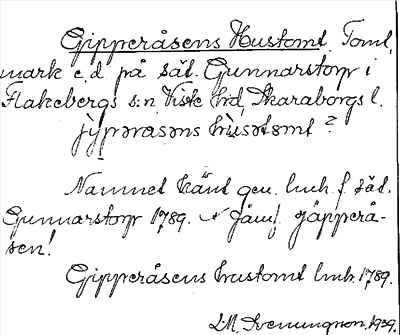 Gipperåsens Hustomt. Tomt,
mark e.d på säl. Gunnarstorp i
Flakebergs s:n Viste hd, Skaraborgs l.
jypərasəns husətsmt ?
Namnet känt gen. lmh. f. säl.
Gunnarstorp 1789. Jämf. Jäpperå-
sen!
Gipperåsens hustomt lmh. 1789.
LM. Svenungson. 1939.